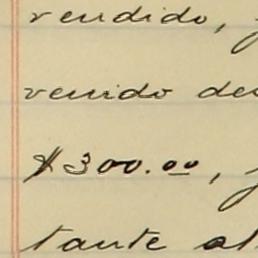 vendido,
venido de
$300.00,
tante al